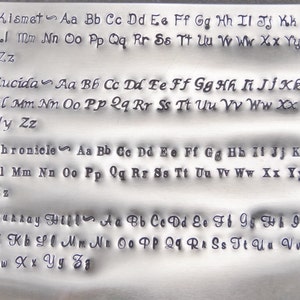 Kismet~ Aa Bb Cc Dd Ee Ff Gg Hh Ii Jj Kk
Ll Mm Nn Oo Pp Qq Rr Ss Tt Uu Vv Ww Xx Yy
Zz
Lucida~ Aa Bb Cc Dd Ee Ff Gg Hh Ii Jj Kk
Ll Mm Nn Oo Pp Qq Rr Ss Tt Uu Vv Ww Xx
Yy Zz
Chronicle~ Aa Bb Cc Dd Ee Ff Gg Hh Ii Jj
Ll Mm Nn Oo Pp Qq Rr Ss Tt Uu Vv Ww Xx
Zz
Murray Hill~ Aa Bb Cc Dd Ee Ff Gg Hh Ii
Jj Kk Ll Mm Nn Oo Pp Qq Rr Ss Tt Uu Vv
Ww Xx Yy Zz